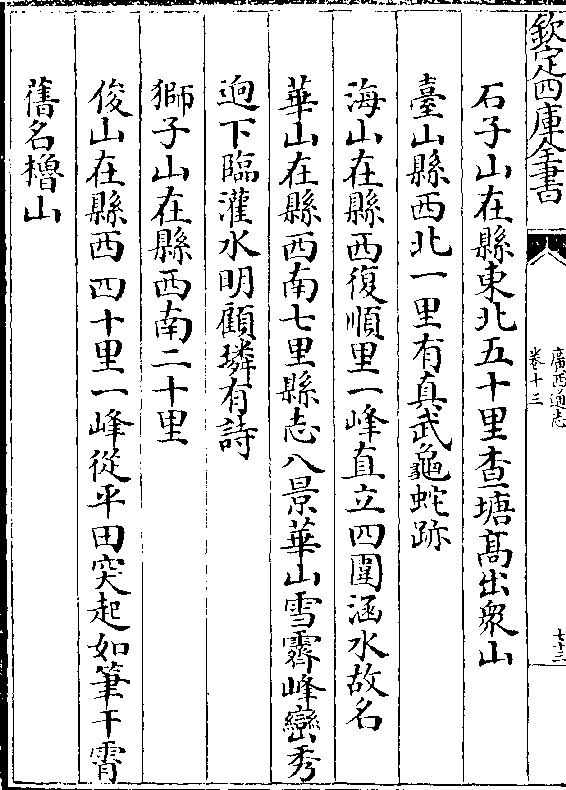 欽定四庫全書
廣西通志
卷十三
七十三
石子山在縣東北五十里查塘髙出衆山
臺山縣西北一里有真武龜蛇跡
海山在縣西復順里一峰直立四圍涵水故名
華山在縣西南七里縣志八景華山雪霽峰巒秀
逈下臨灌水明顧璘有詩
獅子山在縣西南二十里
俊山在縣西四十里一峰從平田突起如筆干霄
舊名櫓山